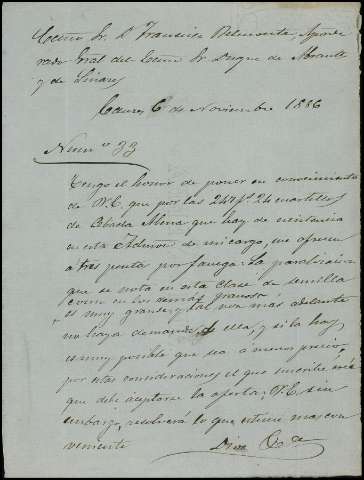 Excmo Sr. D. Francisco Belmonte, Apode
rado Gral del Excmo Sr. Duque de Abrante
y de Linares
6 de Noviembre 1886
Num.º 33
Tengo el honor de poner en conocimiento
de V.E. que por las 247 f.s 24 cuartillos
de Cebada Mena que hay de existencia
en esta Admon de mi cargo, me ofrecen
á tres pesetas por fanega. La paralización
que se nota en esta clase de semilla
como en los demás granos
es muy grande, y tal vez más adelante
no haya demanda de ella, y si la hay
es muy posible que sea á menos precio,
por estas consideraciones el que suscribe cree
que debe aceptarse la oferta. V.E. sin
embargo, resolverá lo que estime mas con
veniente
Dios &a